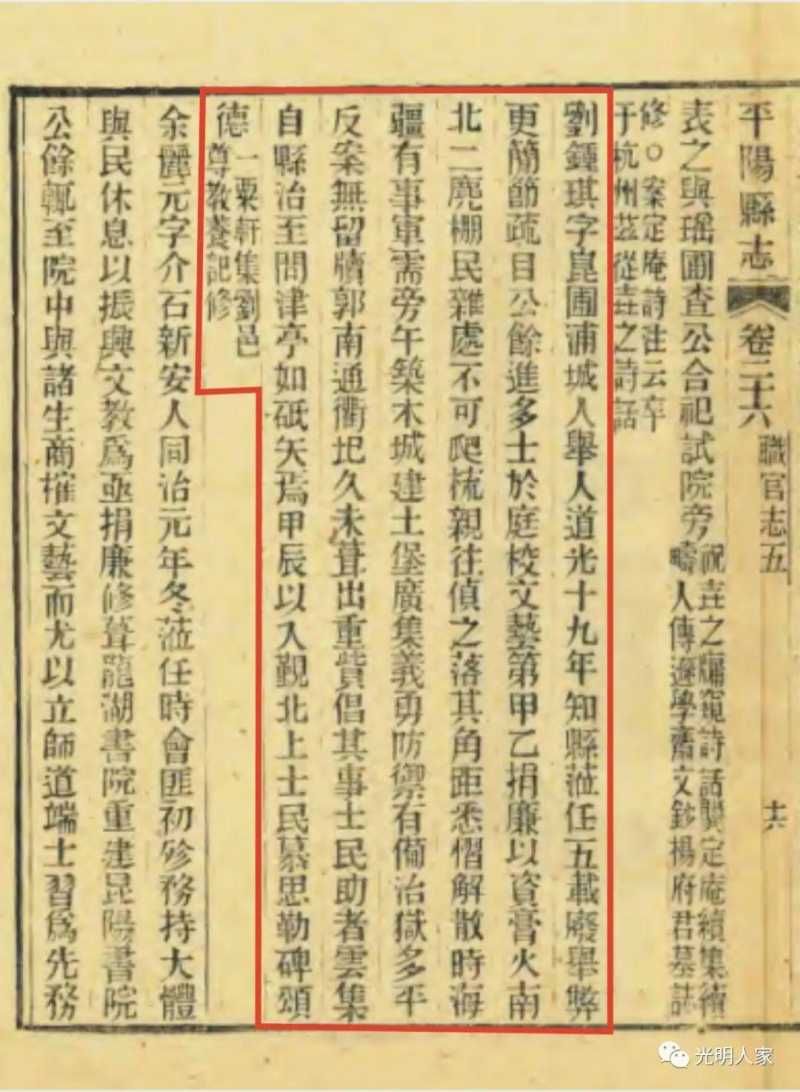 平陽縣志
卷二十六
職官志五
十六
表之與瑶圃查公合祀試院旁
祝垚之牖窺詩話龔定庵續集續
疇人傳遜學齋文鈔楊府君墓誌
修○案定庵詩注云卒
于杭州茲從垚之詩話
劉鍾琪字崑圃浦城人舉人道光十九年知縣蒞任五載廢舉弊
更簡節疏目公餘進多士於庭校文藝第甲乙捐廉以資膏火南
北二麂棚民雜處不可爬梳親往偵之落其角距悉慴解散時海
疆有事軍需旁午築木城建土堡廣集義勇防禦有備治獄多平
反案無留牘郭南通衢圯久未葺出重貲倡其事士民助者雲集
自縣治至問津亭如砥矢焉甲辰以入覲北上士民慕思勒碑頌
德
一粟軒集劉邑
尊教養記修
余麗元字介石新安人同治元年冬蒞任時會匪初殄務持大體
與民休息以振興文教爲亟捐廉修葺龍湖書院重建昆陽書院
公餘輒至院中與諸生商搉文藝而尤以立師道端士習爲先務
光明人家